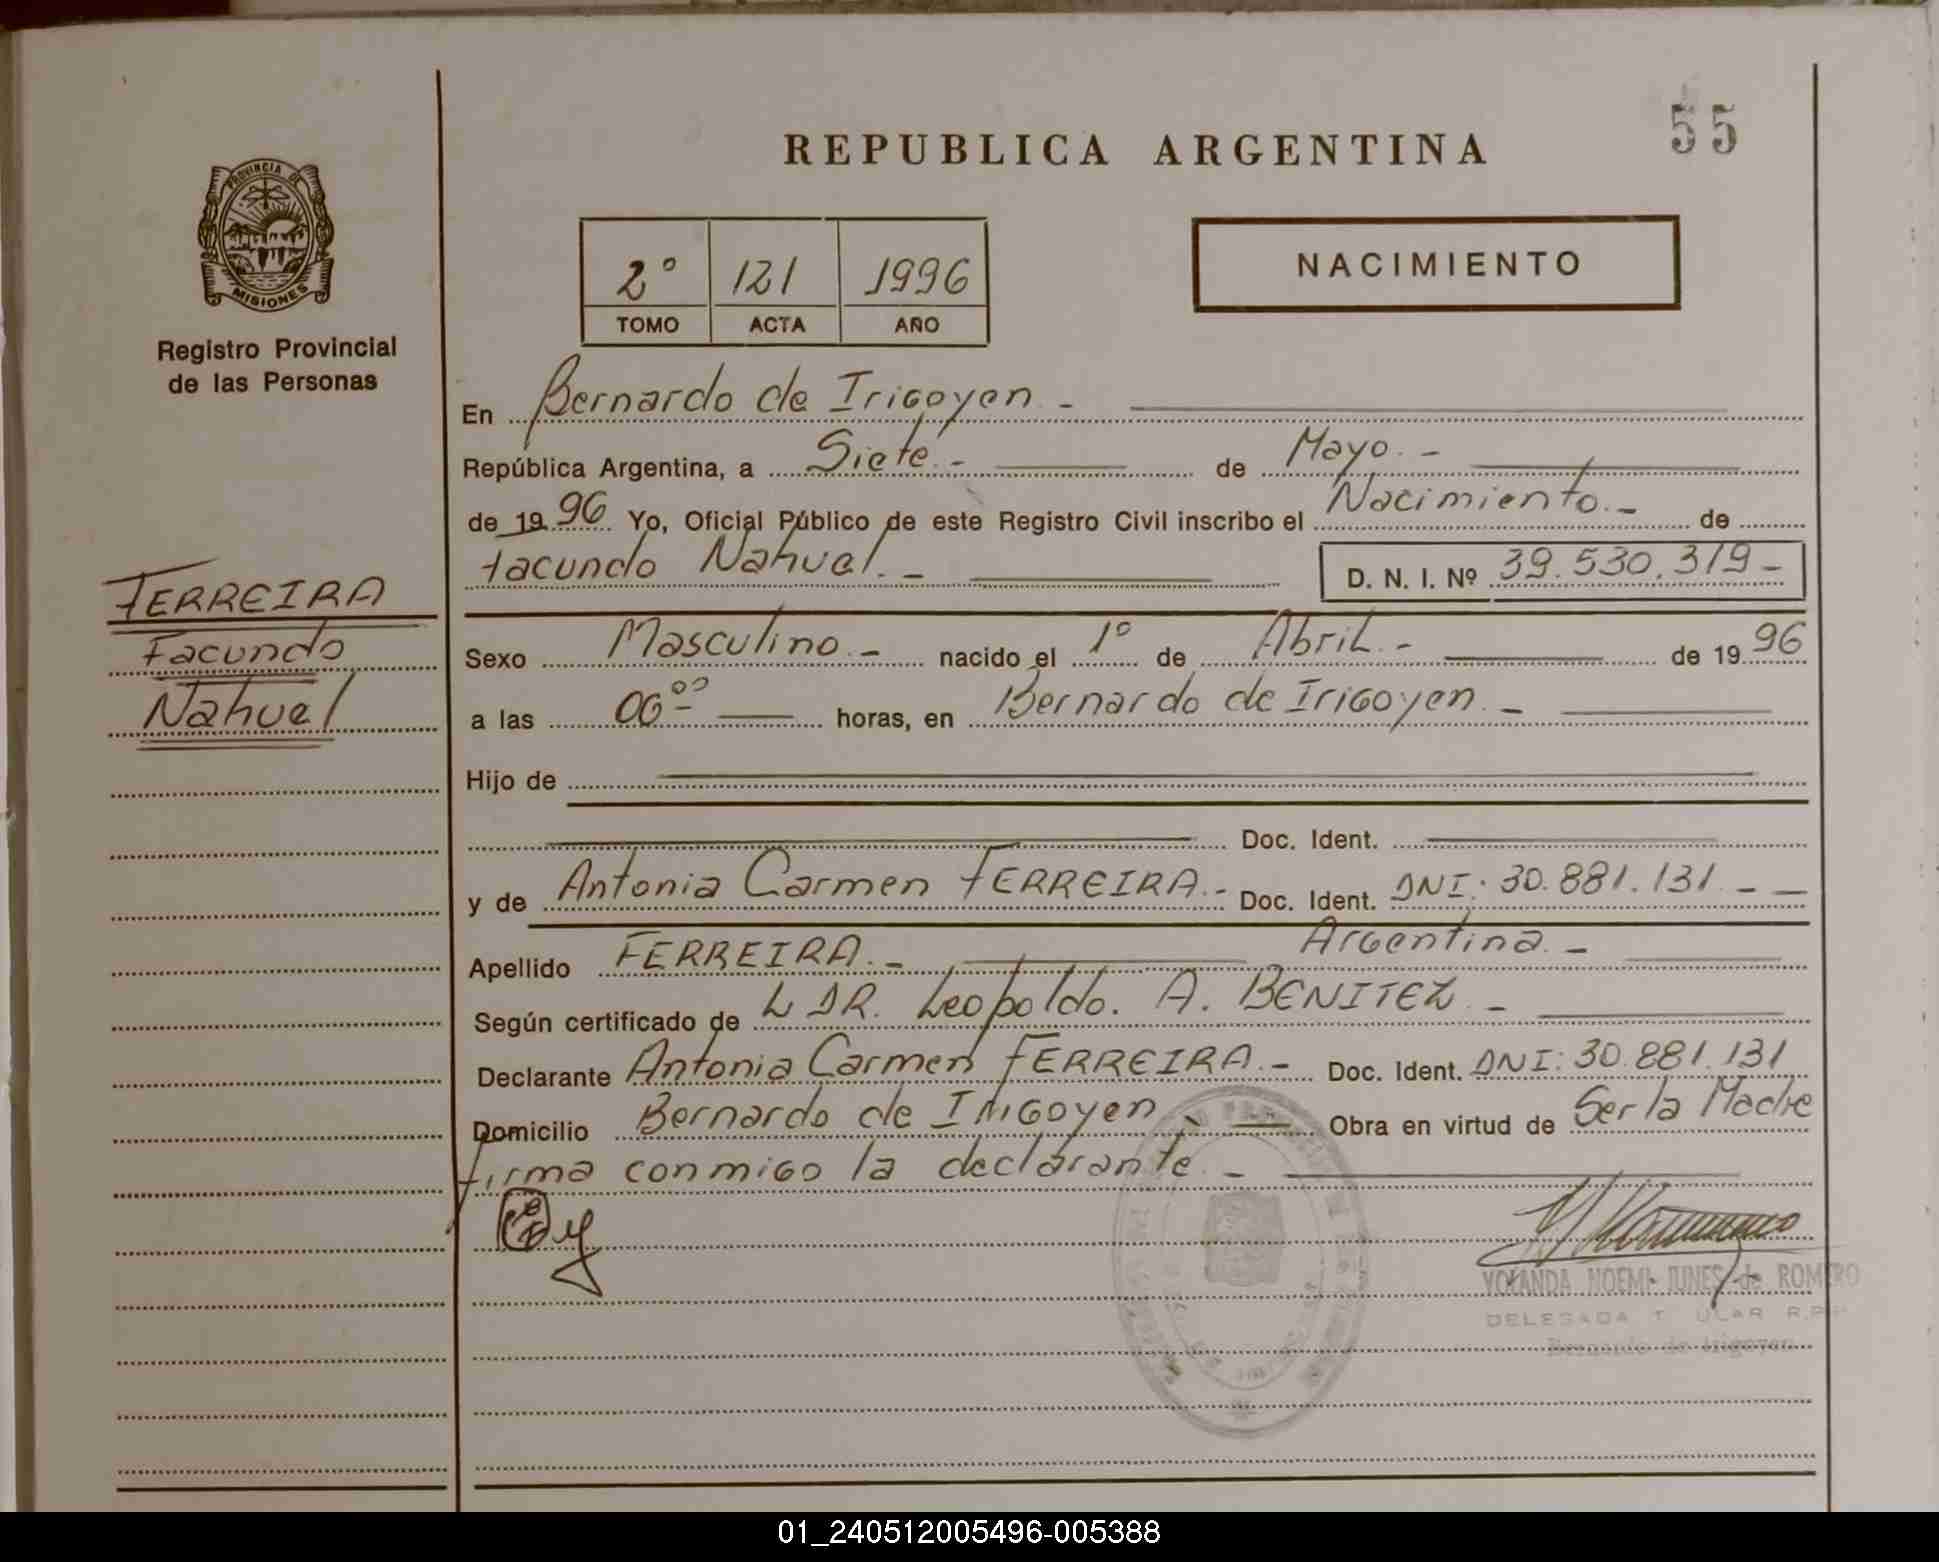 55
REPUBLICA ARGENTINA
PROVINCIA DE
MISIONES
Registro Provincial
de las Personas
2º 121 1996
TOMO ACTA AÑO
NACIMIENTO
En Bernardo de Irigoyen -
República Argentina, a Siete - de Mayo. -
de 1996 Yo, Oficial Público de este Registro Civil inscribo el Nacimiento. - de
Facundo Nahuel. - D. N. I. Nº 39.530.319 -
FERREIRA
Facundo
Nahuel
Sexo Masculino. - nacido el 1º de Abril. - de 1996
a las 06ºº horas, en Bernardo de Irigoyen. -
Hijo de
Doc. Ident.
y de Antonia Carmen FERREIRA. - Doc. Ident. DNI: 30.881.131 - -
Apellido FERREIRA. - Argentina. -
Según certificado de DR. Leopoldo. A. BENITEZ. -
Declarante Antonia Carmen FERREIRA. - Doc. Ident. DNI: 30.881.131
Domicilio Bernardo de Irigoyen Obra en virtud de Ser la Madre
firma conmigo la declarante. -
YOLANDA NOEMI JUNES de ROMERO
DELEGADA
Bernardo de Irigoyen
01_240512005496-005388